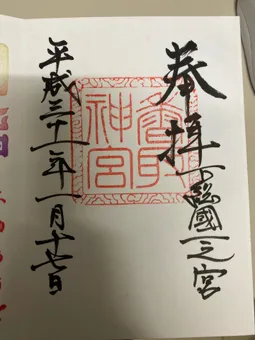 奉拝
下総國一之宮
香取神宮
平成三十一年一月十七日